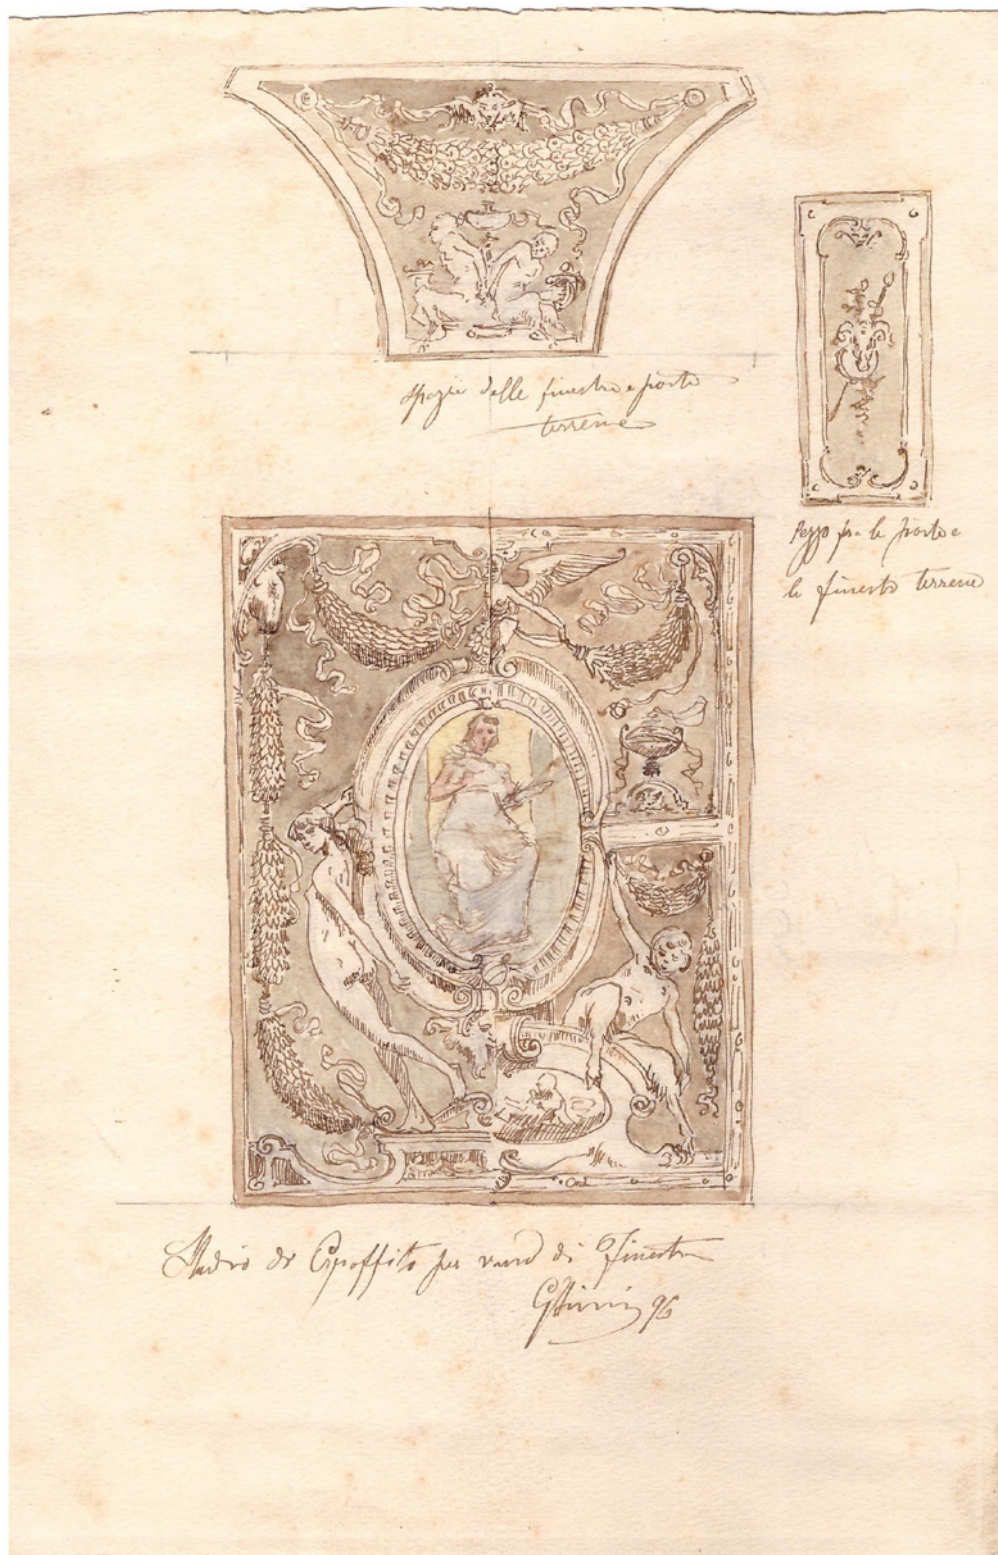 spazio delle finestre e porte
terrene
Pezzo fra le porte e
le finestre terrene
Studio di Graffito per vano di finestra
96